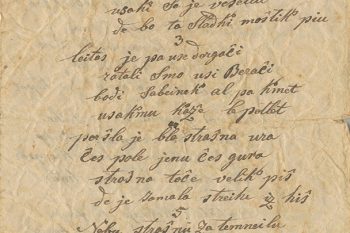 usaki So je veselil
de bo ta Sladki moštik piu
3
leitos je pa use drgači
ratali Smo usi Berači
bodi Sabeinek al pa kmet
usakmu kaže b potbet
4
peršla je bla strašna ura
čes pole jenu čes gura
strašna toče velik piš
de je zamala streihe iz hiš
5
Nebu strašnu Za temneilu